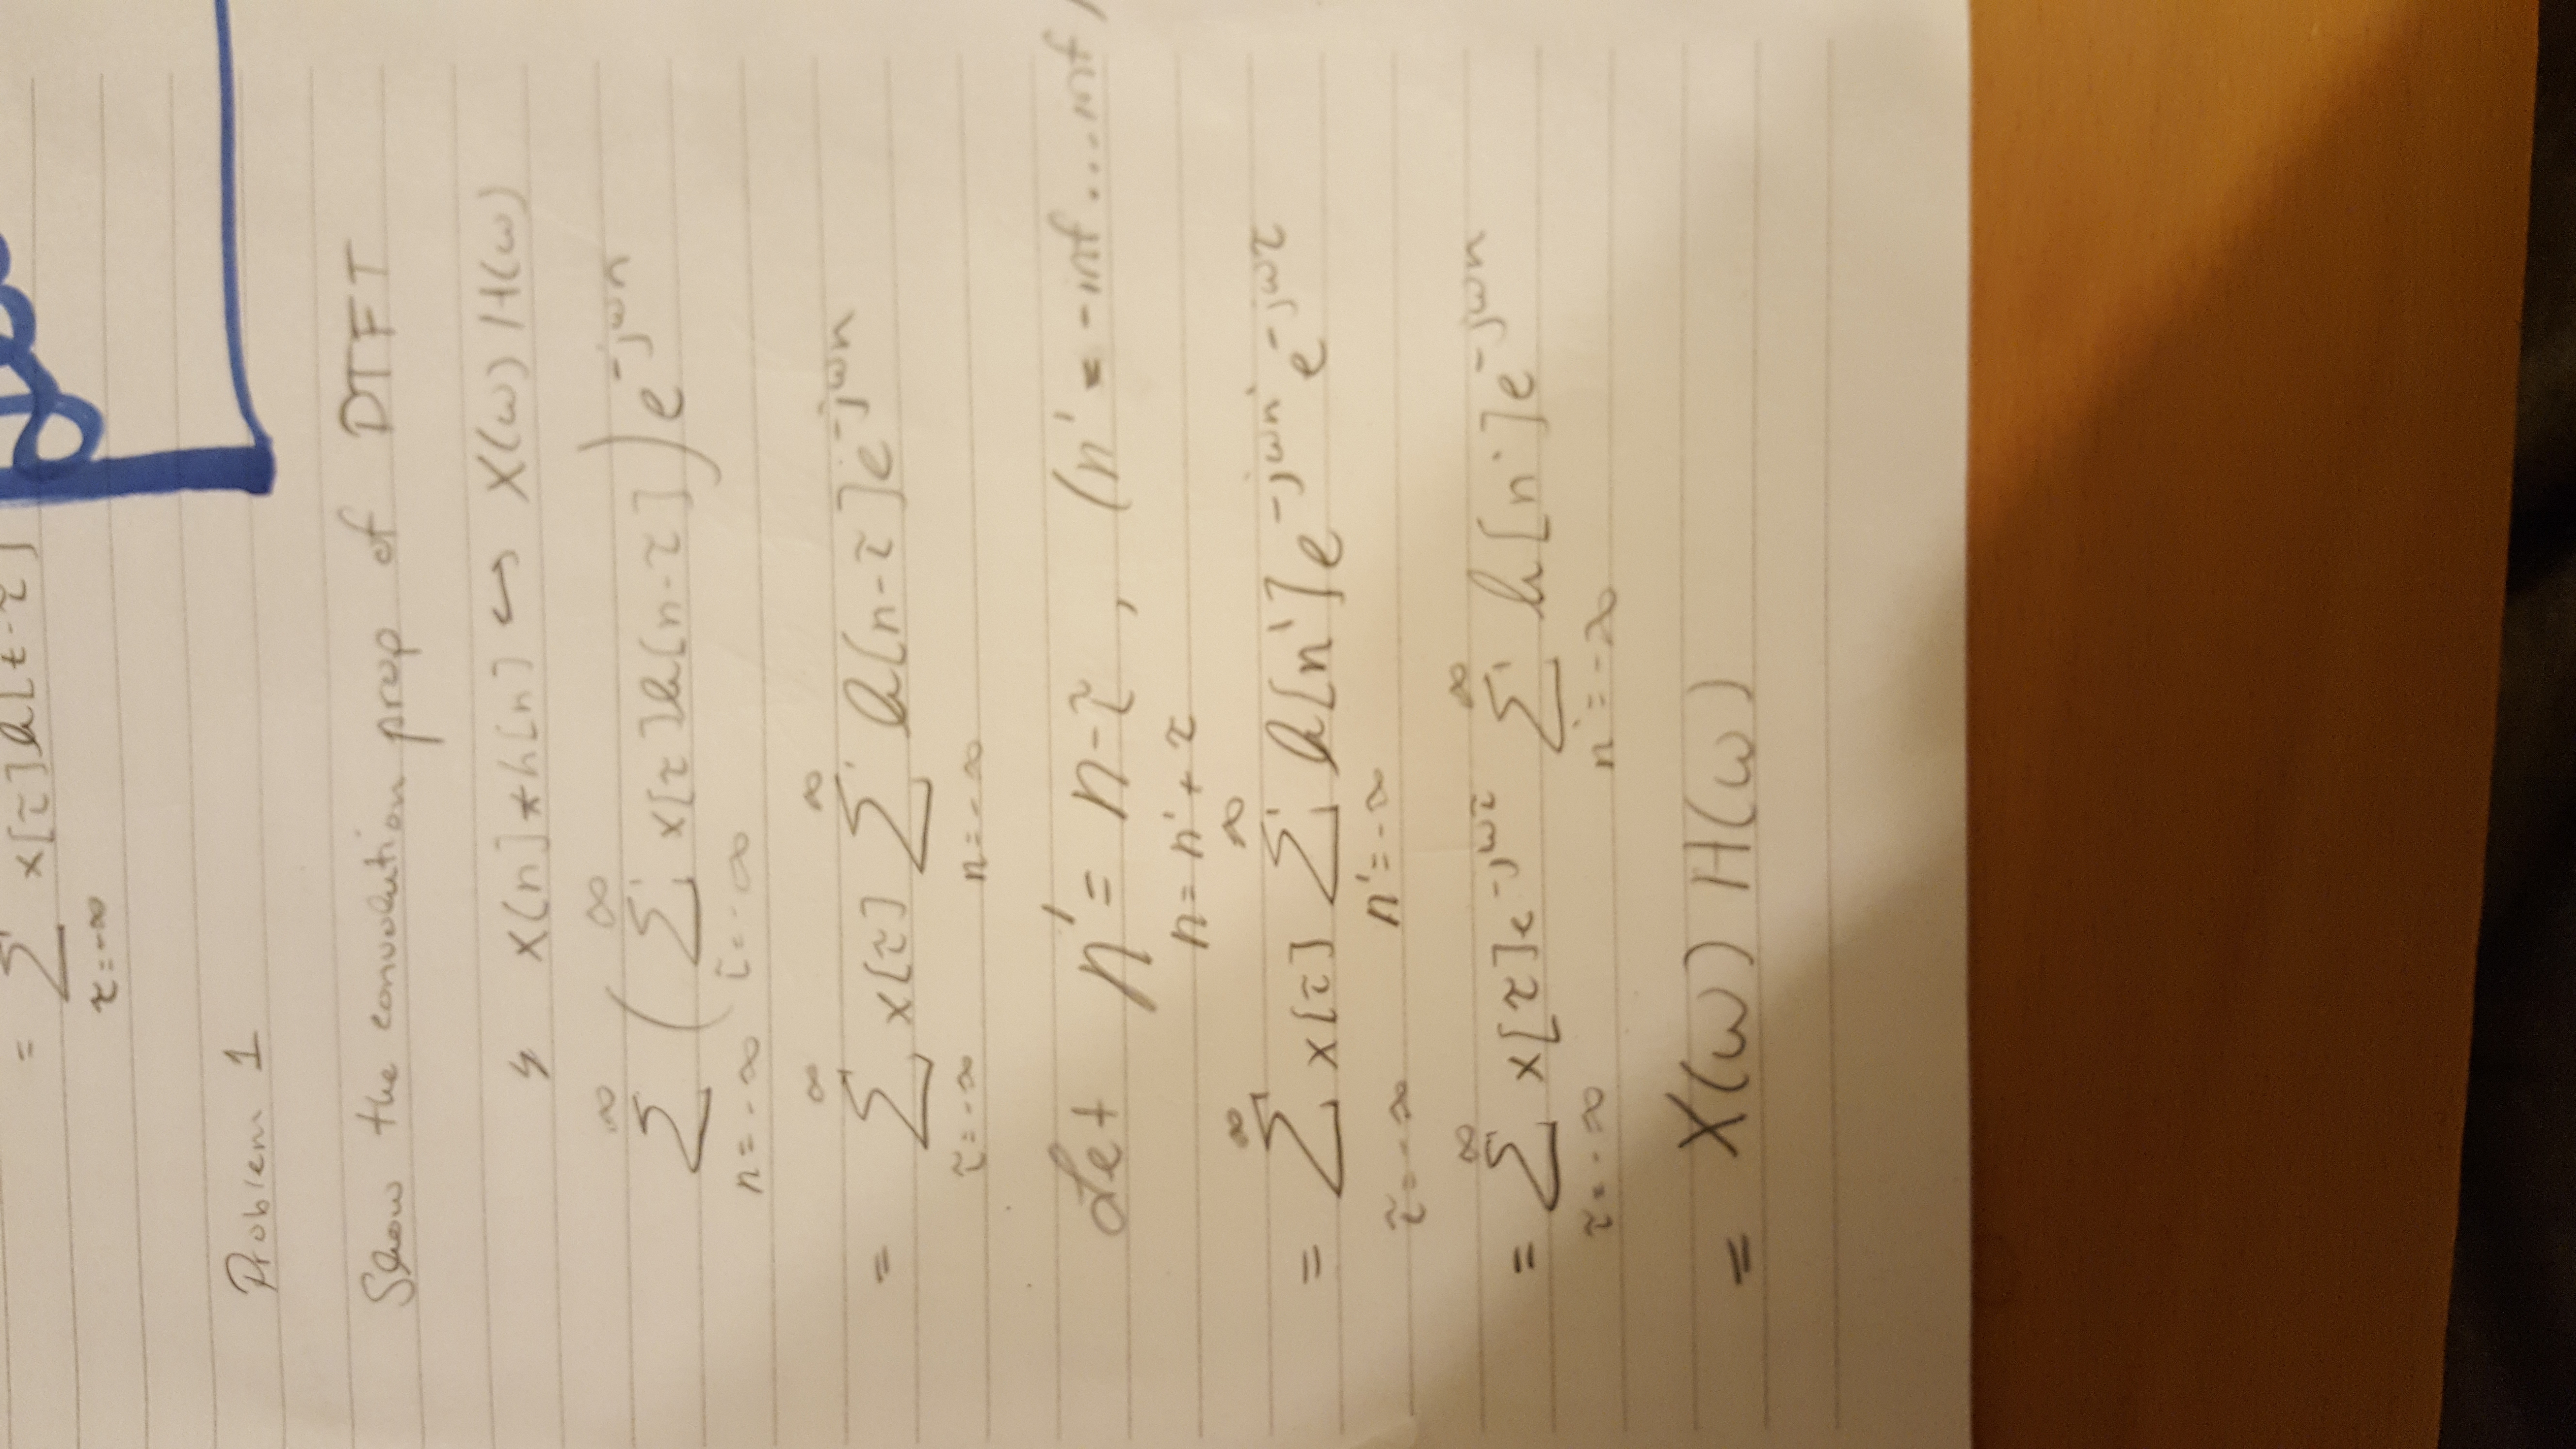 = Σ x[τ]h[t-τ]
τ=-∞
Problem 1
Show the convolution prop of DTFT
x[n]*h[n] ↔ X(ω) H(ω)
∞ ∞
Σ ( Σ x[τ]h[n-τ] ) e^-jωn
n=-∞ τ=-∞
∞ ∞
= Σ x[τ] Σ h[n-τ]e^-jωn
τ=-∞ n=-∞
Let n' = n-τ , (n' = -inf...inf)
n = n' + τ
∞ ∞
= Σ x[τ] Σ h[n']e^-jωn' e^-jωτ
τ=-∞ n'=-∞
∞ ∞
= Σ x[τ]e^-jωτ Σ h[n']e^-jωn
τ=-∞ n'=-∞
= X(ω) H(ω)